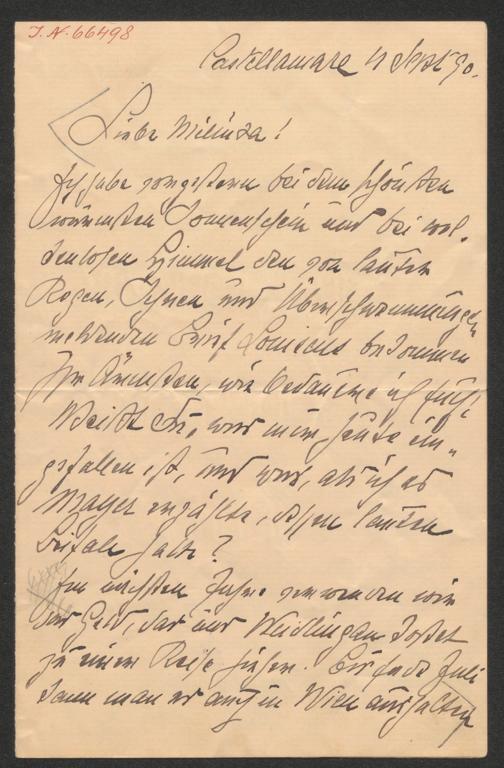 I. N. 66498
Castellamare 4 Sept 90.
Liebe Milinka!
Ich habe vorgestern bei dem schönsten
wärmsten Sonnenschein und bei wol-
kenlosen Himmel den von lauter
Regen, Schnee und Überschwemmungen
meldenden Brief Louisens bekommen
Ihr Ärmsten, wie bedaure ich Euch!
Weißt Du, was mir heute ein-
gefallen ist, und was, als ich es
Mayer erzählte, dessen lauten
Beifall hatte?
Im nächsten Jahre verwenden wir
das Geld, das uns Weidlingau kostet
zu einer Reise hieher. Bis Ende Juli
kann man es auch in Wien aushalten